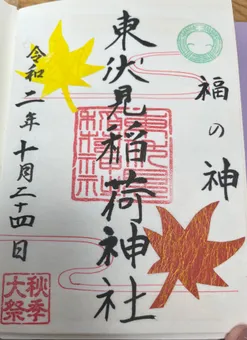 福の神
東伏見稲荷神社
令和二年十月二十四日
秋季
大祭